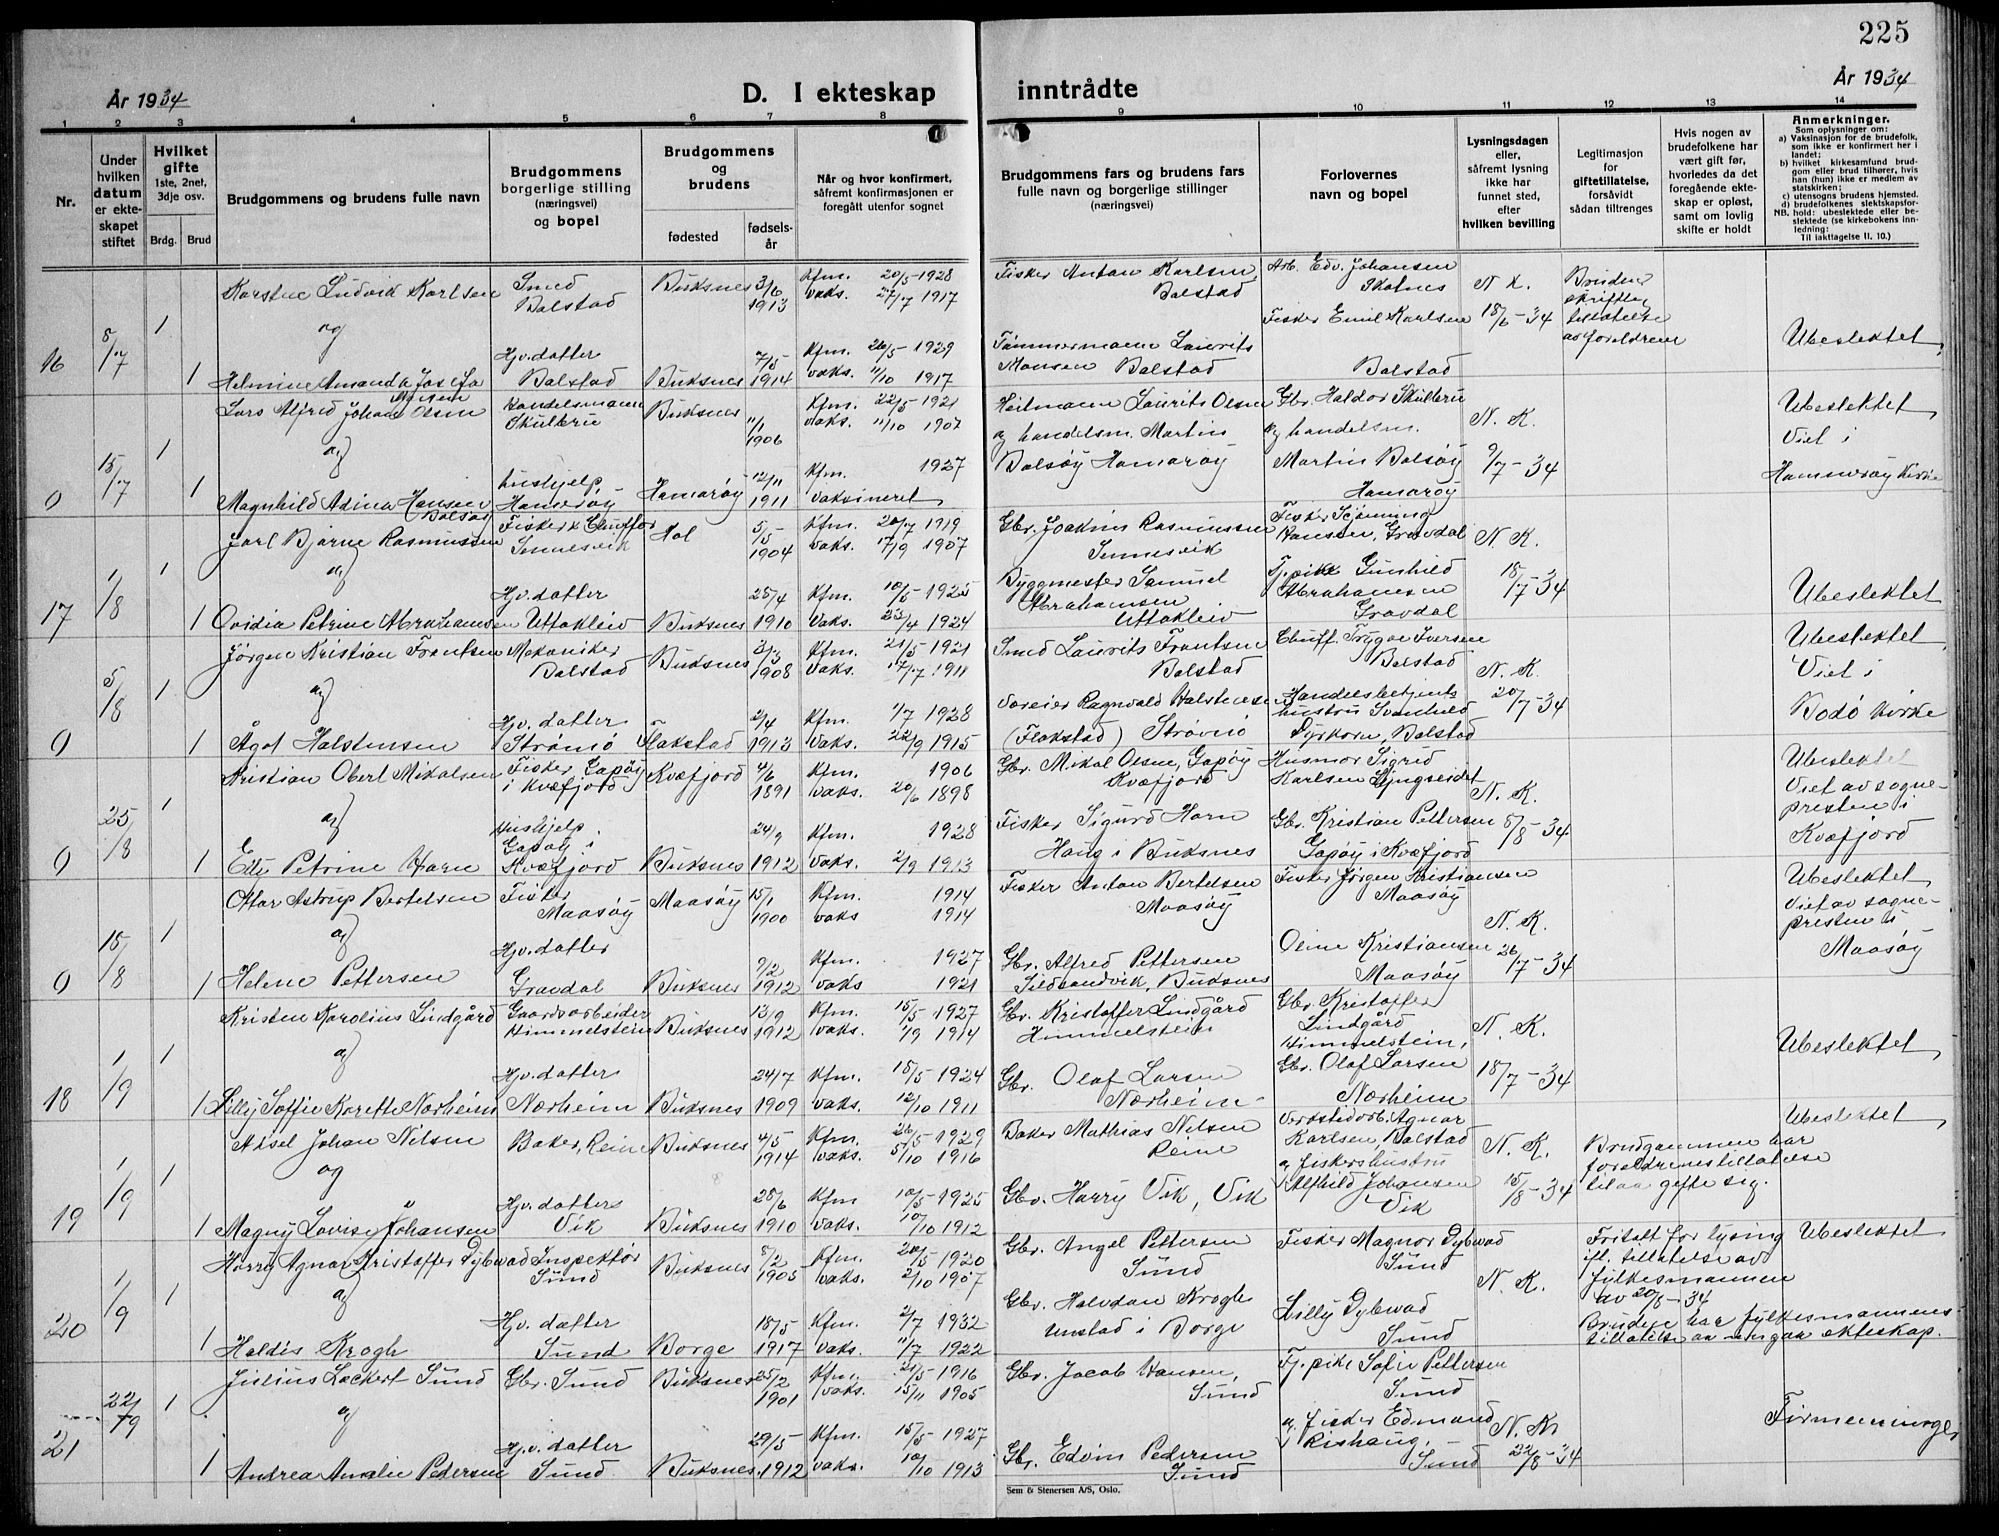 225
År 1934
D. I ekteskap
inntrådte
År 1934
1 2 3 4 5 6 7 8 9 10 11 12 13 14
Nr.
Under
hvilken
datum
er ekte-
skapet
stiftet
Hvilket
gifte
1ste, 2net,
3dje osv.
Brdg. Brud
Brudgommens og brudens fulle navn
Brudgommens
borgerlige stilling
(næringsvei)
og bopel
Brudgommens
og
brudens
fødested
fødsels-
år
Når og hvor konfirmert,
såfremt konfirmasjonen er
foregått utenfor sognet
Brudgommens fars og brudens fars
fulle navn og borgerlige stillinger
(næringsvei)
Forlovernes
navn og bopel
Lysningsdagen
eller,
såfremt lysning
ikke har
funnet sted,
efter
hvilken bevilling
Legitimasjon
for
giftetillatelse,
forsåvidt
sådan tiltrenges
Hvis nogen av
brudefolkene har
vært gift før,
hvorledes da det
foregående ekte-
skap er opløst,
samt om lovlig
skifte er holdt
Anmerkninger.
Som oplysninger om:
a) Vaksinasjon for de brudefolk,
som ikke er konfirmert her i
landet;
b) hvilket kirkesamfund brud-
gom eller brud tilhører, hvis
han (hun) ikke er medlem av
statskirken;
c) utensogns brudens hjemsted.
d) brudefolkenes slektskapsfor-
NB. hold: ubeslektede eller be-
slektede (se kirkebokens inn-
ledning:
Til iakttagelse II. 10.)
16 5/7 1 Karstne Ludvik Karlsen Smed Balstad Buksnes 3/6 1913 Kfm. 20/5-1928 vaks. 27/7 1917 Fisker Anton Karlsen, Balstad Arb. Edv. Johansen Skotnes N. K. Brudens skriftlig tillatelse av foreldrene
og Fisker Emil Karlsen 18/6-34 Ubeslektet
1 Helmine Amanda Josefa Monsen Hjv. datter Balstad Buksnes 7/5 1914 Kfm. 26/5-1929 vaks. 11/10 1917 Tømmermann Laurits Monsen Balstad Balstad
0 15/7 1 Lars Alfred Johan Olsen Handelsmann Skulbru Buksnes 11/1 1906 Kfm. 22/5-1921 vaks. 11/10 1907 Heilmann Laurits Olsen Gbr. Haldor Skulbru N. K. Ubeslektet
og og handelsm. Martin og handelsm. Viet i
1 Magnhild Adina Hansen Balsøy hushjelp Hamarøy Hamarøy 12/11 1911 Kfm. 1927 vaksineret Balsøy Hamarøy Martin Balsøy Hamarøy 9/7-34 Hammerøy Kirke
17 1/8 1 Jarl Bjarne Rasmussen Fisker & Chuffør Sennesvik Hol 5/5 1904 Kfm. 20/7 1919 vaks. 17/9 1907 Gbr. Joakim Rasmussen Sennesvik Fisker Schønning Hanssen, Gravdal N. K.
og
1 Ovidia Petrine Abrahamsen Hjv. datter Uttakleiv Buksnes 25/4 1910 Kfm. 10/5-1925 vaks. 23/4 1924 Byggmester Samuel Abrahamsen Uttakleiv Tj. pike Gunhild Abrahamsen Gravdal 18/7-34 Ubeslektet
0 5/8 1 Jørgen Kristian Frantsen Mekaniker Balstad Buksnes 3/3 1908 Kfm. 21/5-1921 vaks. 17/7 1911 Smed Laurits Frantsen Balstad Chuff. Trygve Iversen Balstad N. K. Ubeslektet Viet i
og
1 Ågot Halstensen Hjv. datter Strømø Flakstad 2/4 1913 Kfm. 1/7 1928 vaks. 22/9 1915 Væreier Ragnvald Halstensen (Flakstad) Strømø Handelsbetjents hustru Svanhild Dyrkorn, Balstad 20/7-34 Bodø Kirke
0 25/8 1 Kristian Obert Mikalsen Fisker Gapøy i Kvæfjord Kvæfjord 4/6 1891 Kfm. 1906 vaks. 20/6 1898 Gbr. Mikal Olsen, Gapøy Kvæfjord Husmor Sigrid Karlsen Ljngseidet N. K. Ubeslektet
og Viet av sogne-
1 Petrine Horn Hushjelp. Gapøy i Kvæfjord Buksnes 24/9 1912 Kfm. 1928 vaks. 2/9 1913 Fisker Sigurd Horn Haug i Buksnes Gbr. Kristian Pettersen Gapøy i Kvæfjord 5/8-34 presten i Kvæfjord
0 15/8 1 Otar Astrup Bertelsen Fisker Maasøy Maasøy 15/1 1900 Kfm. 1914 vaks 1914 Fisker Anton Bertelsen Maasøy Fisker Jørgen Kristiansen Maasøy N. K. Ubeslektet Viet av sogne-
og presten i
1 Helene Pettersen Hjv. datter Gravdal Buksnes 9/2 1912 Kfm. 1927 vaks 1921 Gbr. Alfred Pettersen Sildsandvik, Buksnes Oline Kristiansen Maasøy 26/7-34 Maasøy
18 1/9 1 Kristen Karolius Lindgård Gaardsarbeider Himmelstein Buksnes 13/9 1912 Kfm. 15/5-1927 vaks. 1/9 1914 Gbr. Kristoffer Lindgård Himmelstein Gbr. Kristoffer Lindgård Himmelstein, N. K.
og Ubeslektet
1 Lilly Soffie Karette Nærheim Hjv. datter Nærheim Buksnes 24/7 1909 Kfm. 15/5-1924 vaks. 12/10 1911 Gbr. Olaf Larsen Nærheim Gbr. Olaf Larsen Nærheim 18/7-34
19 1/9 1 Aksel Johan Nilsen Baker, Reine Buksnes 4/5 1914 Kfm. 26/5-1929 vaks. 5/10 1916 Baker Mathias Nilsen Reine Verkstedarb. Agnar Karlsen, Balstad N. K. Brudgommen har foreldrenes tillatelse til aa gifte sig. Ubeslektet
og og fiskershustru
1 Magny Lovise Johansen Hjv. datter Vik Buksnes 28/6 1910 Kfm 10/5-1925 vaks. 10/10 1912 Gbr. Harry Vik, Vik Alfhild Johansen Vik 15/8-34
20 1/9 1 Harry Agnar Kristoffer Dybwad Inspektør Sund Buksnes 8/2 1905 Kfm. 20/5-1920 vaks. 2/10 1907 Gbr. Angel Pettersen Sund Fisker Magnor Dybwad Sund N. K. Fritatt for lysing ifl. tillatelse av fylkesmannen av 20/8-34 Ubeslektet
og
1 Haldis Krogh Hjv. datter Sund Borge 18/5 1917 Kfm. 2/7 1932 vaks. 11/7 1922 Gbr. Halvdan Krogh Unstad i Borge Lilly Dybwad Sund Bruden har fylkesmannens tillatelse av inngaa ekteskap.
21 22/9 1 Julius Lockert Sund Gbr. Sund Buksnes 25/2 1901 Kfm. 21/5-1916 vaks. 15/11 1905 Gbr. Jacob Hansen, Sund Tj. pike Sofie Pettersen Sund
og og fisker Edmund N. K. Firmenninger
1 Andrea Amalie Pedersen Hjv. datter Sund. Buksnes. 29/5 1912 Kfm. 15/5-1927 vaks. 10/10 1913 Gbr. Edvin Pedersen Sund Rishaug, Sund 22/8-34
Sem & Stenersen A/S, Oslo.